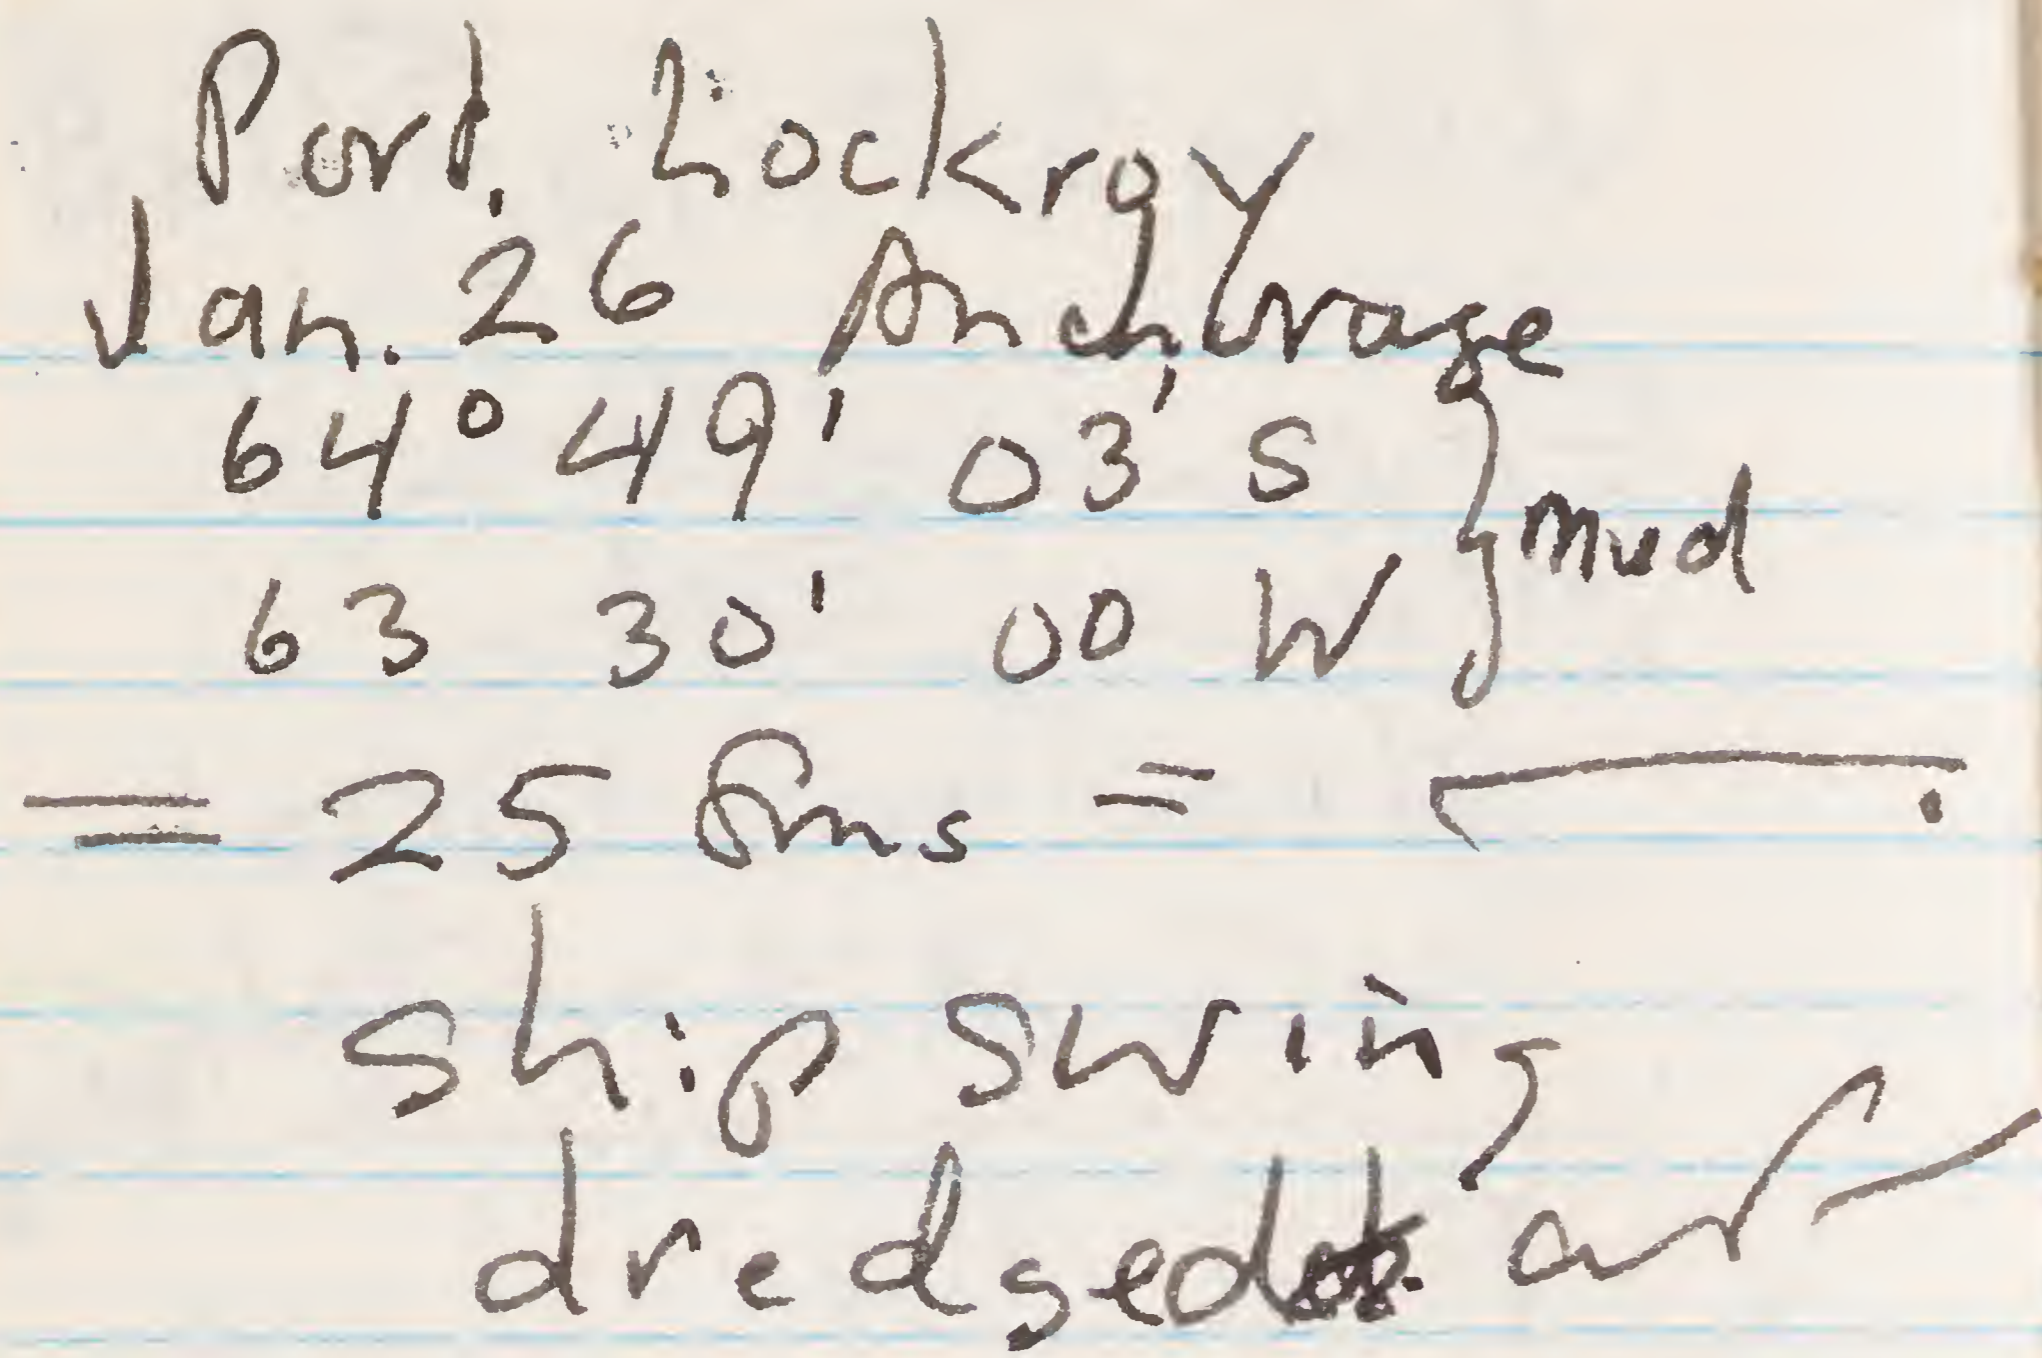 Port Lockroy
Jan. 26 Anchorage
64° 49' 03' S } mud
63 30' 00 W
= 25 fms =
ship swing
dredged